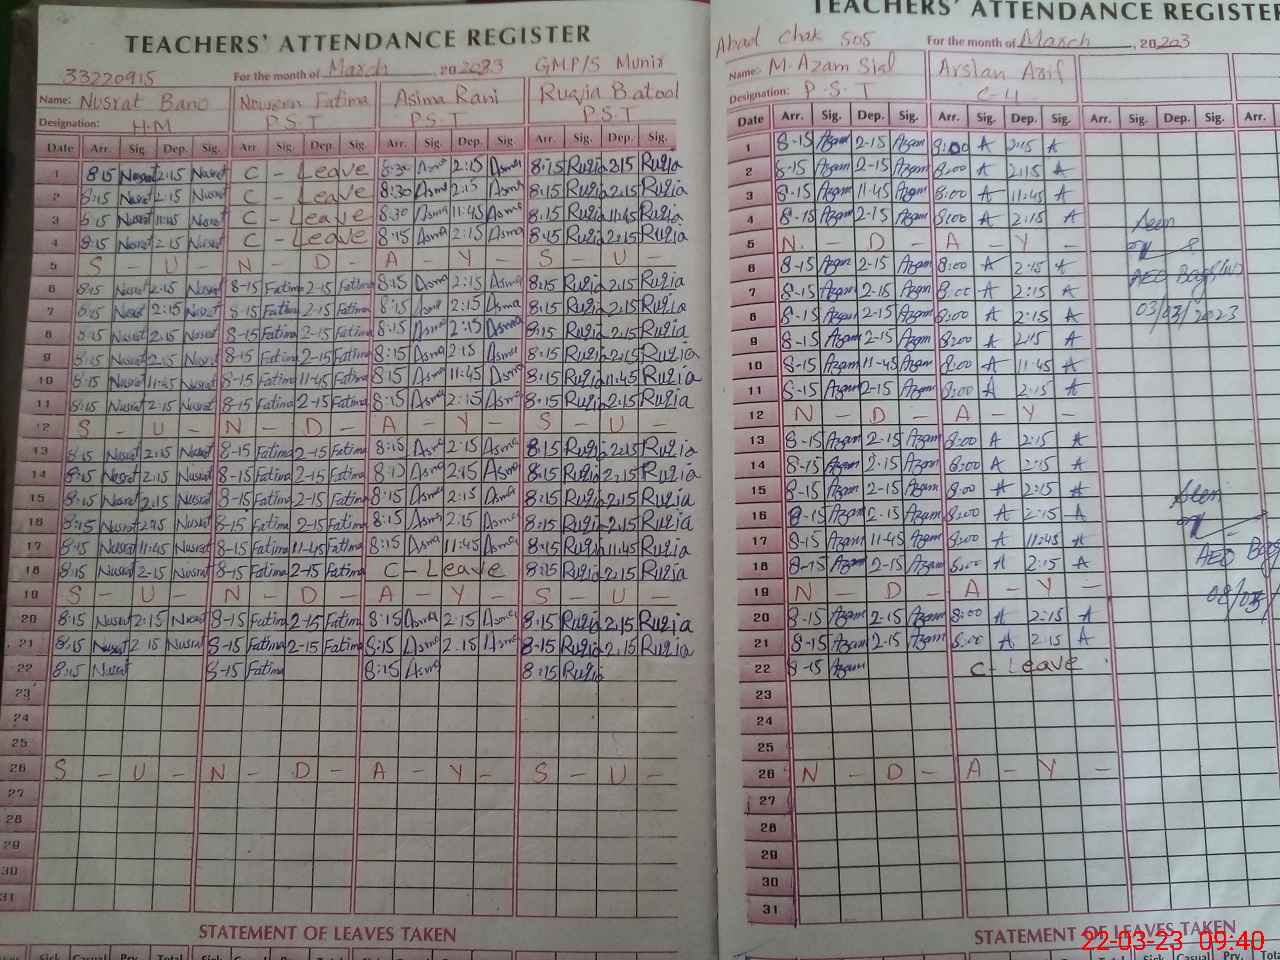 TEACHERS' ATTENDANCE REGISTER
33220915 For the month of March, 202023 G.M.P/S Munir
Name: Nusrat Bano Nowreen Fatima Asima Rani Ruqia Batool
Designation: H.M P.S.T P.S.T P.S.T
Date Arr. Sig. Dep. Sig. Arr. Sig. Dep. Sig. Arr. Sig. Dep. Sig. Arr. Sig. Dep. Sig.
1 8:15 Nusrat 2:15 Nusrat C - Leave 8:30 Asma 2:15 Asma 8:15 Ruqia 2:15 Ruqia
2 8:15 Nusrat 2:15 Nusrat C - Leave 8:30 Asma 2:15 Asma 8:15 Ruqia 2:15 Ruqia
3 8:15 Nusrat 11:45 Nusrat C - Leave 8:30 Asma 11:45 Asma 8:15 Ruqia 11:45 Ruqia
4 8:15 Nusrat 2:15 Nusrat C - Leave 8:15 Asma 2:15 Asma 8:15 Ruqia 2:15 Ruqia
5 S - U - N - D - A - Y - S - U -
6 8:15 Nusrat 2:15 Nusrat 8-15 Fatima 2-15 Fatima 8:15 Asma 2:15 Asma 8:15 Ruqia 2:15 Ruqia
7 8:15 Nusrat 2:15 Nusrat 8-15 Fatima 2-15 Fatima 8:15 Asma 2:15 Asma 8:15 Ruqia 2:15 Ruqia
8 8:15 Nusrat 2:15 Nusrat 8-15 Fatima 2-15 Fatima 8:15 Asma 2:15 Asma 8:15 Ruqia 2:15 Ruqia
9 8:15 Nusrat 2:15 Nusrat 8-15 Fatima 2-15 Fatima 8:15 Asma 2:15 Asma 8:15 Ruqia 2:15 Ruqia
10 8:15 Nusrat 11:45 Nusrat 8-15 Fatima 11-45 Fatima 8:15 Asma 11:45 Asma 8:15 Ruqia 11:45 Ruqia
11 8:15 Nusrat 2:15 Nusrat 8-15 Fatima 2-15 Fatima 8:15 Asma 2:15 Asma 8:15 Ruqia 2:15 Ruqia
12 S - U - N - D - A - Y - S - U -
13 8:15 Nusrat 2:15 Nusrat 8-15 Fatima 2-15 Fatima 8:15 Asma 2:15 Asma 8:15 Ruqia 2:15 Ruqia
14 8:15 Nusrat 2:15 Nusrat 8-15 Fatima 2-15 Fatima 8:15 Asma 2:15 Asma 8:15 Ruqia 2:15 Ruqia
15 8:15 Nusrat 2:15 Nusrat 8-15 Fatima 2-15 Fatima 8:15 Asma 2:15 Asma 8:15 Ruqia 2:15 Ruqia
16 8:15 Nusrat 2:15 Nusrat 8-15 Fatima 2-15 Fatima 8:15 Asma 2:15 Asma 8:15 Ruqia 2:15 Ruqia
17 8:15 Nusrat 11:45 Nusrat 8-15 Fatima 11-45 Fatima 8:15 Asma 11:45 Asma 8:15 Ruqia 11:45 Ruqia
18 8:15 Nusrat 2-15 Nusrat 8-15 Fatima 2-15 Fatima C - Leave 8:15 Ruqia 2:15 Ruqia
19 S - U - N - D - A - Y - S - U -
20 8:15 Nusrat 2:15 Nusrat 8-15 Fatima 2-15 Fatima 8:15 Asma 2:15 Asma 8:15 Ruqia 2:15 Ruqia
21 8:15 Nusrat 2:15 Nusrat 8-15 Fatima 2-15 Fatima 8:15 Asma 2:15 Asma 8-15 Ruqia 2:15 Ruqia
22 8:15 Nusrat 8-15 Fatima 8:15 Asma 8:15 Ruqia
23
24
25
26 S - U - N - D - A - Y - S - U -
27
28
29
30
31
STATEMENT OF LEAVES TAKEN
Sick Casual Prv. Total
TEACHERS' ATTENDANCE REGISTER
Abad Chak 505 For the month of March, 20203
Name: M. Azam Sial Arslan Arif
Designation: P.S.T C-4
Date Arr. Sig. Dep. Sig. Arr. Sig. Dep. Sig. Arr. Sig. Dep. Sig. Arr.
1 8-15 Azam 2-15 Azam 8:00 A 2:15 A
2 8-15 Azam 2-15 Azam 8:00 A 2:15 A
3 8-15 Azam 11-45 Azam 8:00 A 11:45 A
4 8-15 Azam 2-15 Azam 8:00 A 2:15 A Seen
5 N. D - A - Y -
6 8-15 Azam 2-15 Azam 8:00 A 2:15 A
7 8-15 Azam 2-15 Azam 8:00 A 2:15 A AEO
8 8-15 Azam 2-15 Azam 8:00 A 2:15 A 03/03/2023
9 8-15 Azam 2-15 Azam 8:00 A 2:15 A
10 8-15 Azam 11-45 Azam 8:00 A 11:45 A
11 8-15 Azam 2-15 Azam 8:00 A 2:15 A
12 N - D - A - Y -
13 8-15 Azam 2-15 Azam 8:00 A 2:15 A
14 8-15 Azam 2-15 Azam 8:00 A 2:15 A
15 8-15 Azam 2-15 Azam 8:00 A 2:15 A Seen
16 8-15 Azam 2-15 Azam 8:00 A 2:15 A
17 8-15 Azam 11-45 Azam 8:00 A 11:45 A
18 8-15 Azam 2-15 Azam 8:00 A 2:15 A AEO
19 N - D - A - Y -
20 8-15 Azam 2-15 Azam 8:00 A 2:15 A
21 8-15 Azam 2-15 Azam 8:00 A 2:15 A
22 8-15 Azam C - Leave
23
24
25
26 N - D - A - Y -
27
28
29
30
31
STATEMENT OF LEAVES TAKEN
22-03-23 09:40
Sick Casual Prv. Total